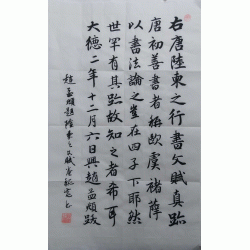 右唐陸東之行書文賦真跡
唐初善書者稱歐虞褚薛
以書法論之豈在四子下耶然
世罕有其跡故知之者希耳
大德二年十二月六日興趙孟頫跋
趙孟頫題陸東之文賦